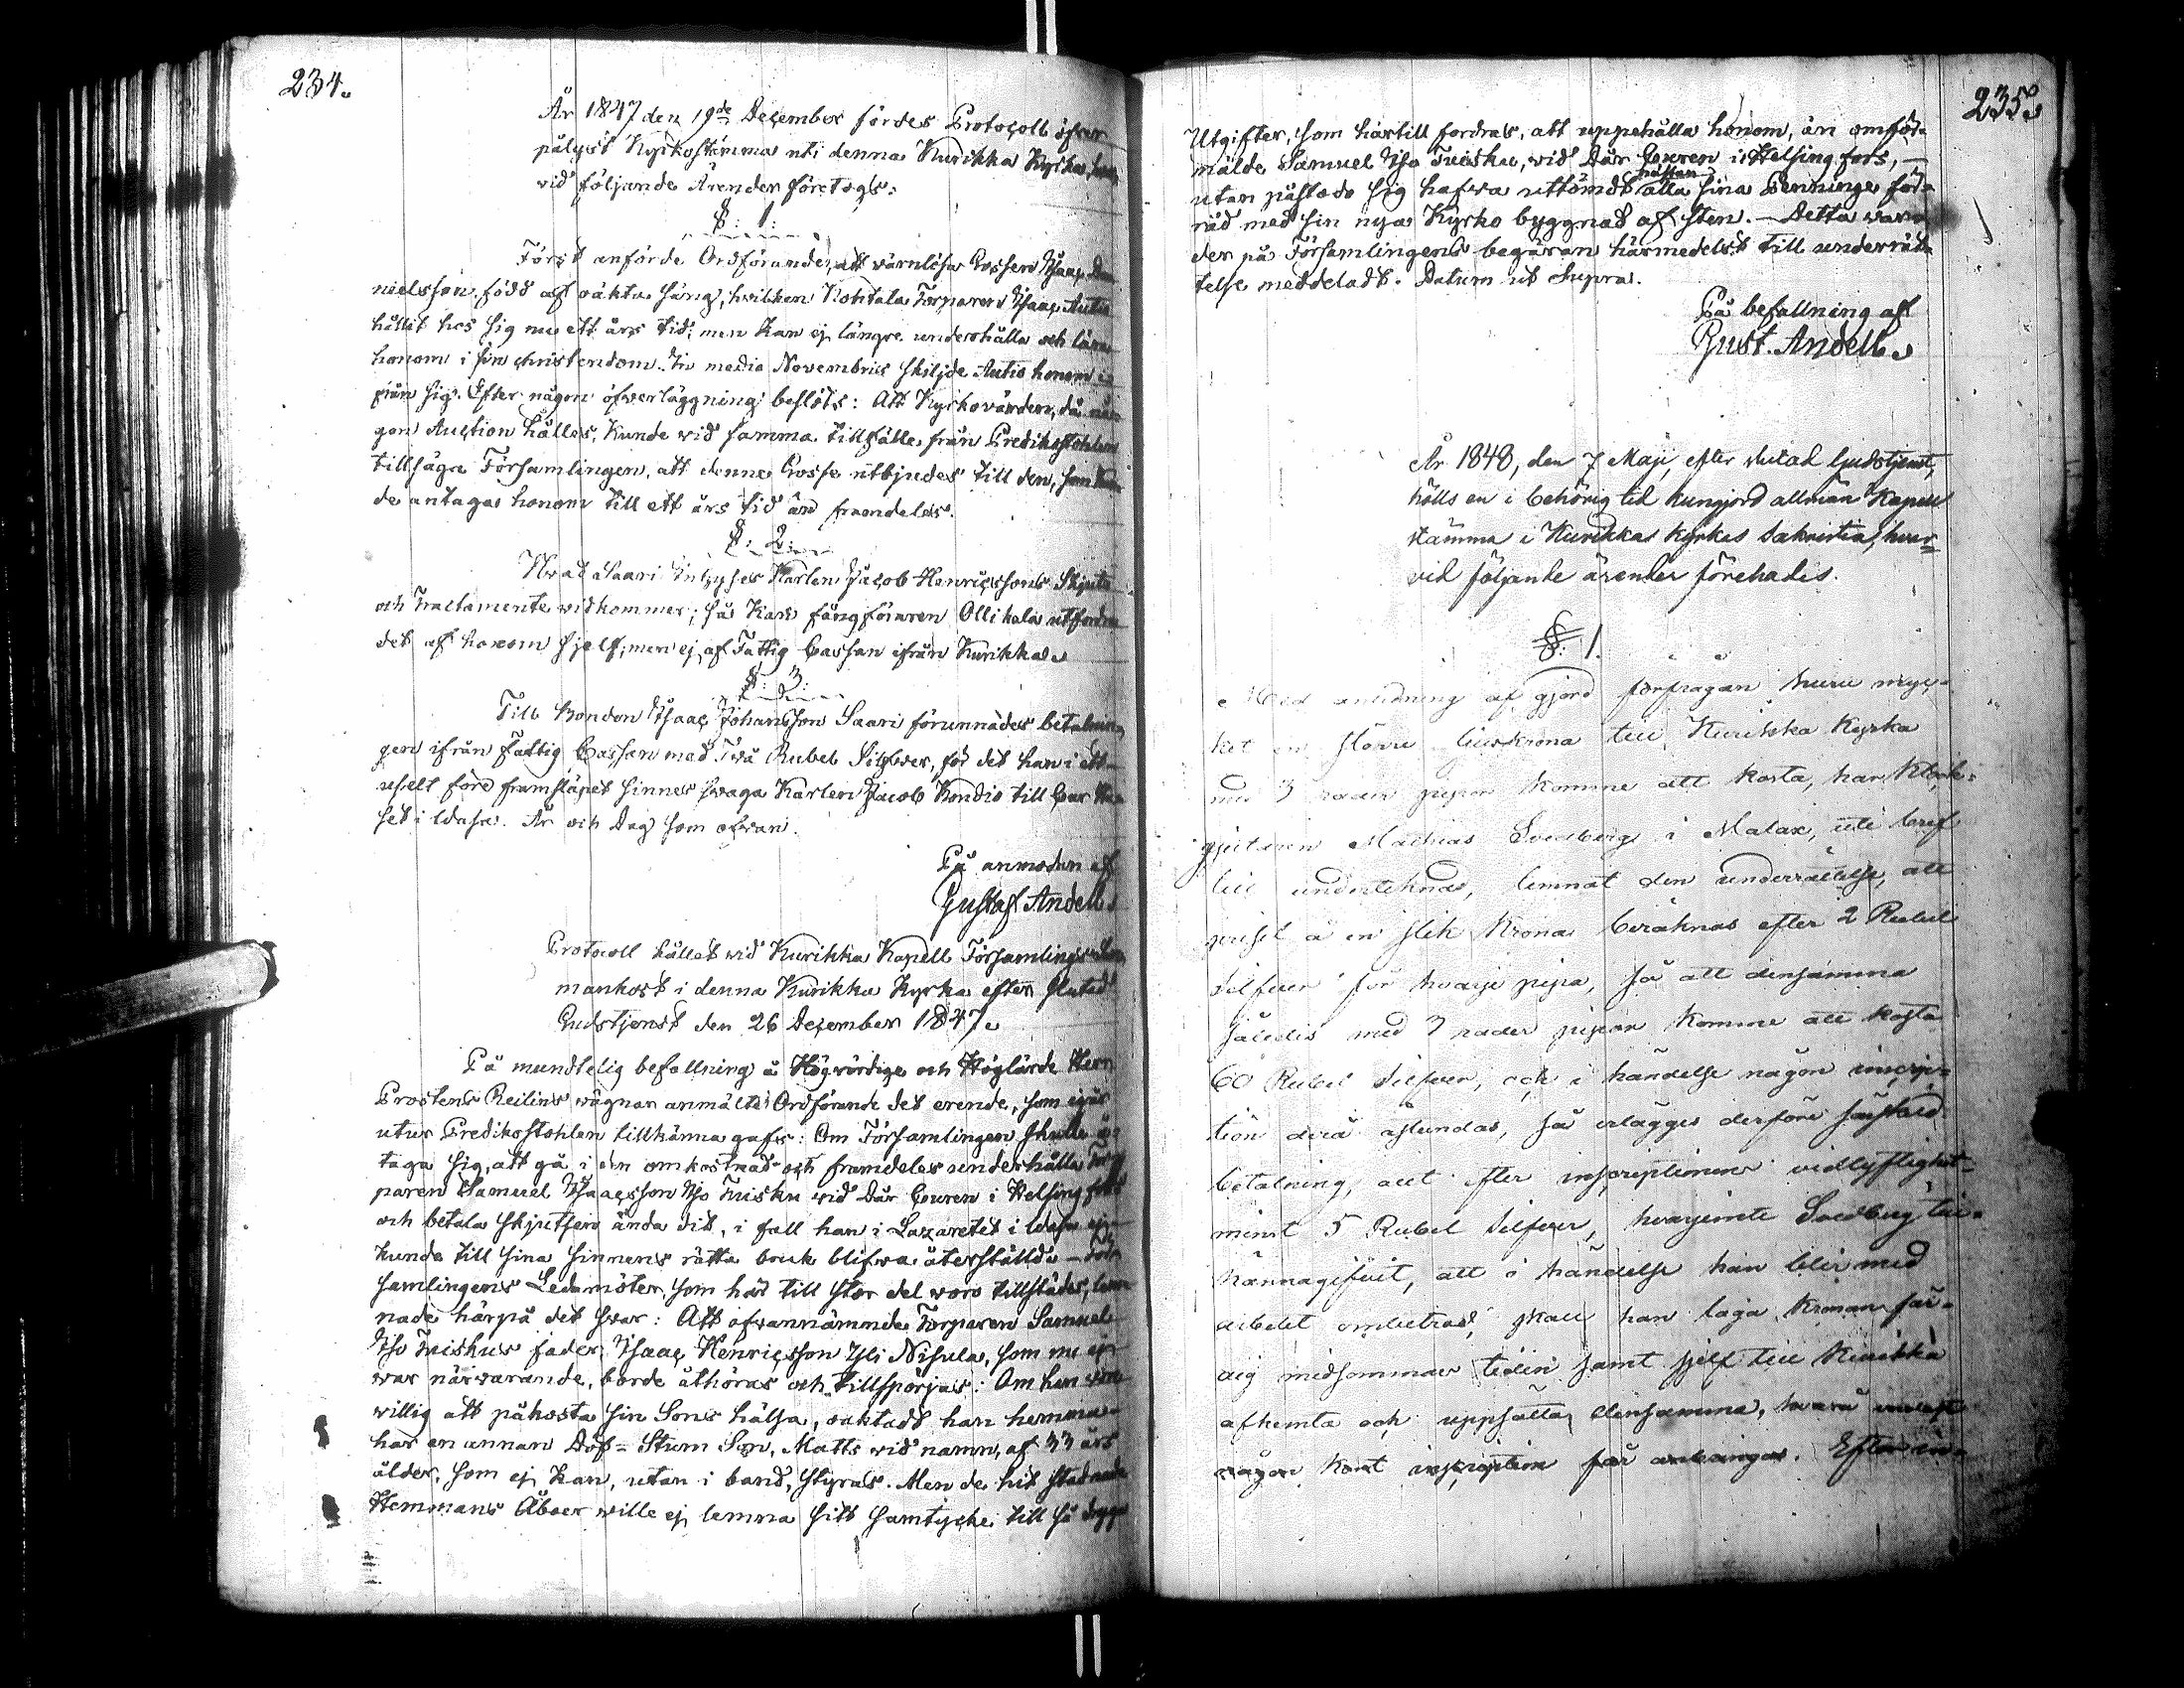 234.
År 1847 den 19de December fördes Protocoll öfver
pålyst Kyrkostämma uti denna Kurikka Kyrka,
vid följande Ärender företogs:
§: 1:
Först anförde Ordförande, att värnlösa Gossen Isaac Da-
nielsson, född af oäkta säng, hvilken Kohtala Torparen Isaac Autio
hållit hos sig nu ett års tid; men kan ej längre underhålla och lära
honom i sin christendom. In medio Novembris skiljde Autio honom i-
från sig. Efter någon öfverläggning beslöts: Att Kyrkovärden, då nå-
gon Auction hålles, kunde vid samma tillfälle från Predikstohlen
tillsäga Församlingen, att denne Gosse utbjudes till den, som kun-
de antaga honom till ett års tid än framdeles.
§: 2:
Hvad Saari Inhyses Karlen Jacob Henricssons Skjuts
och Tractamente vidkommer; så kan fångföraren Ollikala utfordra
det af honom sjelf; men ej af Fattig Cassan ifrån Kurikka.
§: 3:
Till Bonden Isaac Johansson Saari förunnades betalnin-
gen ifrån Fattig Cassan med Två Rubel Silfver, för det han i ett
uselt före framsläpet sinnes svaga Karlen Jacob Kondio till Cur Hu-
set i Wasa. År och Dag som ofvan.
På anmodan af
Gustaf Andell.
Protocoll hållet vid Kurikka Kapell Församlings
mankost i denna Kurikka Kyrka efter slutad
Gudstjenst den 26 December 1847.
På mundtelig befallning å Högvördige och Höglärde Herr
Prostens Reilins vägnar anmälte Ordförande det erende, som
utur Predikostohlen tillkänna gafs: Om Församlingen skulle å-
taga sig, att gå i den omkostnad och framdeles underhålla Tor-
paren Samuel Isaacsson Iso Tuisku vid Dår Curen i Helsingfors
och betala skjutsen ända dit, i fall han i Lazarettet i Wasa ej
kunde till sina sinnens rätta bruk blifva återställd. – För-
samlingens Ledamöter, som här till stor del voro tillstädes, lem-
nade härpå det svar: Att ofvannämnde Torparen Samuel
Iso Tuiskus fader, Isaac Henricsson Yli Nisula, som nu ej
var närvarande, borde åthöras och tillspörjas: Om han vore
willig att påkosta sin Sons hälsa, oaktadt han hemma
har en annan Döf-Stum Son, Matts vid namn, af 33 års
ålder, som ej kan, utan i band, styras. Men de hit
Hemmans Åboer ville ej lemna sitt samtycke till så dryga
235.
Utgifter, som härtill fordras, att uppehålla honom, än omför-
mälde Samuel Iso Tuisku, vid Dår Curen i Helsingfors, –
nästan
utan påstods sig hafva uttömdt alla sina Penninge för-
råd med sin nya Kyrko byggnad af sten. – Detta
der på Församlingens begäran härmedelst till underrät-
telse meddeladt. Datum ut Supra.
På befallning af
Gust. Andell.
År 1848, den 7 Maji, efter slutad Gudstjenst,
hölls en i behörig tid kungjord allmän Kapell
stämma i Kurikkas kyrkas Sakristia, hvar-
vid följande ärender förehades.
§: 1.
Med anledning af gjord förfrågan huru myc-
ket en större ljuskrona till Kurikka Kyrka
med 3 rader pipor komme att kosta, har Klock-
gjutaren Mathias Svedberg i Malax, uti bref
till undertecknad, lemnat den underrättelse, att
priset å en slik krona beräknas efter 2 Rubel
Silfver för hvarje pipa, så att densamma
således med 3 rader pipor komme att kosta
60 Rubel Silfver, och i händelse någon inscrip-
tion derå åstundas, så erlägges derföre särskild
betalning, allt efter inscriptionens vidlyftighet
minst 5 Rubel Silfver, hvarjemte Svedberg till-
kännagifvit, att i händelse han blir med
arbetet ombetrodd, skall han laga kronan fär-
dig midsommars tiden samt sjelf till Kurikka
afhemta och uppsätta densamma, hvarå endast
någon kort inscription får anbringas. Efter